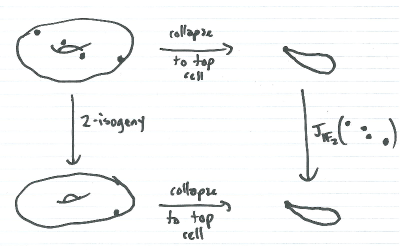 collapse
to top
cell
2-isogeny
J_{𝔽₂}(
)
collapse
to top
cell